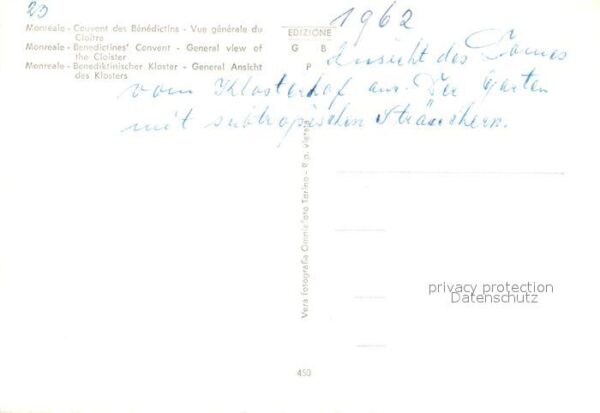 23
1962
Monreale - Couvent des Bénédictins - Vue générale du
Cloître
Monreale - Benedictines' Convent - General view of
the Cloister
Monreale - Benediktinischer Kloster - General Ansicht
des Klosters
EDIZIONE
G B
P
Ansicht des Domes
vom Klosterhof aus. Der Garten
mit subtropischen Sträuchern.
Vera fotografia Omniafoto Torino - Rip. vietata
privacy protection
Datenschutz
450